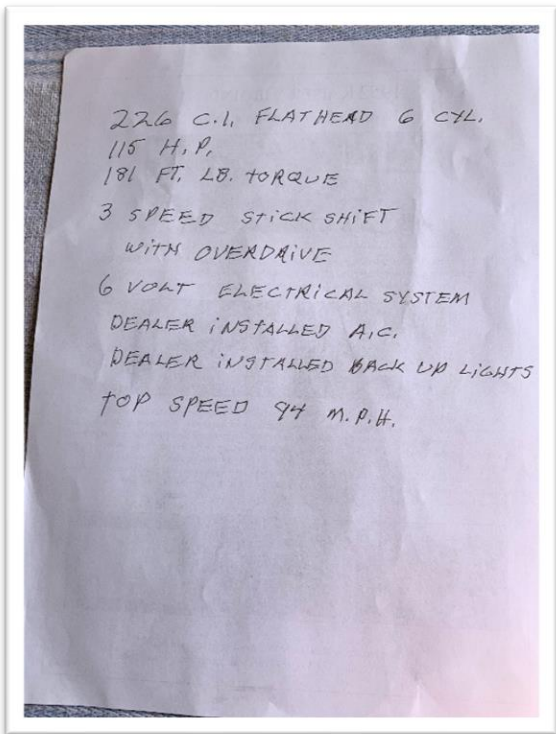 226 C.I. FLATHEAD 6 CYL.
115 H.P.
181 FT. LB. TORQUE
3 SPEED STICK SHIFT
WITH OVERDRIVE
6 VOLT ELECTRICAL SYSTEM
DEALER INSTALLED A.C.
DEALER INSTALLED BACK UP LIGHTS
TOP SPEED 94 M.P.H.